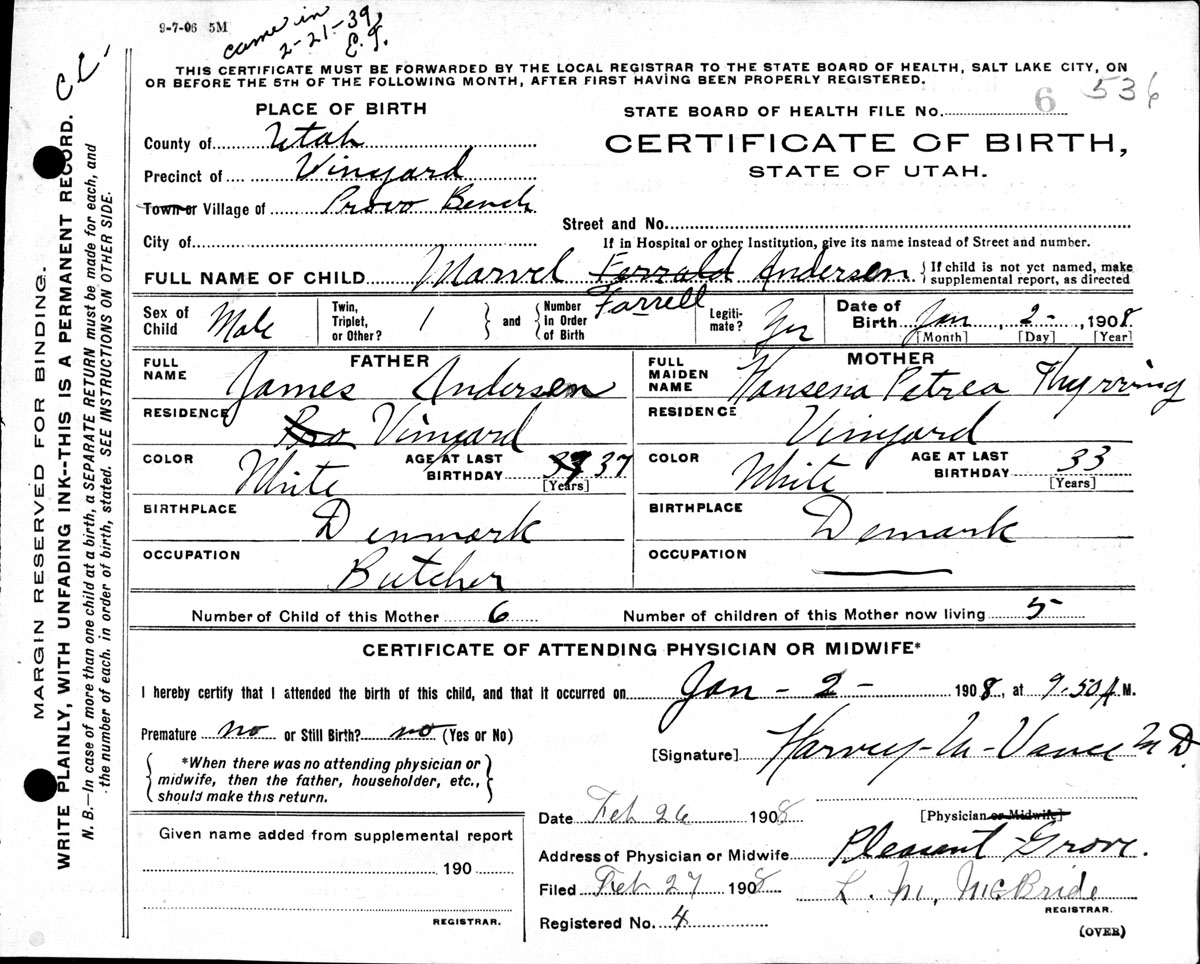 9-7-06 5M
came in
2-21-39
E.T.
THIS CERTIFICATE MUST BE FORWARDED BY THE LOCAL REGISTRAR TO THE STATE BOARD OF HEALTH, SALT LAKE CITY, ON
OR BEFORE THE 5TH OF THE FOLLOWING MONTH, AFTER FIRST HAVING BEEN PROPERLY REGISTERED.
MARGIN RESERVED FOR BINDING.
WRITE PLAINLY, WITH UNFADING INK--THIS IS A PERMANENT RECORD.
N. B.—In case of more than one child at a birth, a SEPARATE RETURN must be made for each, and
the number of each, in order of birth, stated. SEE INSTRUCTIONS ON OTHER SIDE.
PLACE OF BIRTH
STATE BOARD OF HEALTH FILE No. 6 536
County of Utah
CERTIFICATE OF BIRTH,
Precinct of Vinyard
STATE OF UTAH.
Town or Village of Provo Bench
Street and No.
City of
If in Hospital or other Institution, give its name instead of Street and number.
FULL NAME OF CHILD Marvel Ferrald Andersen { If child is not yet named, make supplemental report, as directed
Farrell
Sex of Child Male Twin, Triplet, or Other? 1 and Number In Order of Birth Legiti-mate? Yes Date of Birth Jan, 2-, 1908
[Month] [Day] [Year]
FATHER
FULL NAME James Andersen
RESIDENCE Pro Vinyard
COLOR White AGE AT LAST BIRTHDAY 37 37
[Years]
BIRTHPLACE Denmark
OCCUPATION Butcher
MOTHER
FULL MAIDEN NAME Hansena Petrea Thyrring
RESIDENCE Vinyard
COLOR White AGE AT LAST BIRTHDAY 33
[Years]
BIRTHPLACE Demark
OCCUPATION
Number of Child of this Mother 6 Number of children of this Mother now living 5
CERTIFICATE OF ATTENDING PHYSICIAN OR MIDWIFE*
I hereby certify that I attended the birth of this child, and that it occurred on Jan - 2 - 1908, at 9-50 A M.
Premature no or Still Birth? no (Yes or No)
[Signature] Harvey-M-Vance M D.
*When there was no attending physician or
midwife, then the father, householder, etc.,
should make this return.
[Physician or Midwife]
Date Feb 26 1908
Given name added from supplemental report
Address of Physician or Midwife Pleasant Grove.
190
Filed Feb 27 1908 L. M. McBride
REGISTRAR.
REGISTRAR.
Registered No. 4
(OVER)